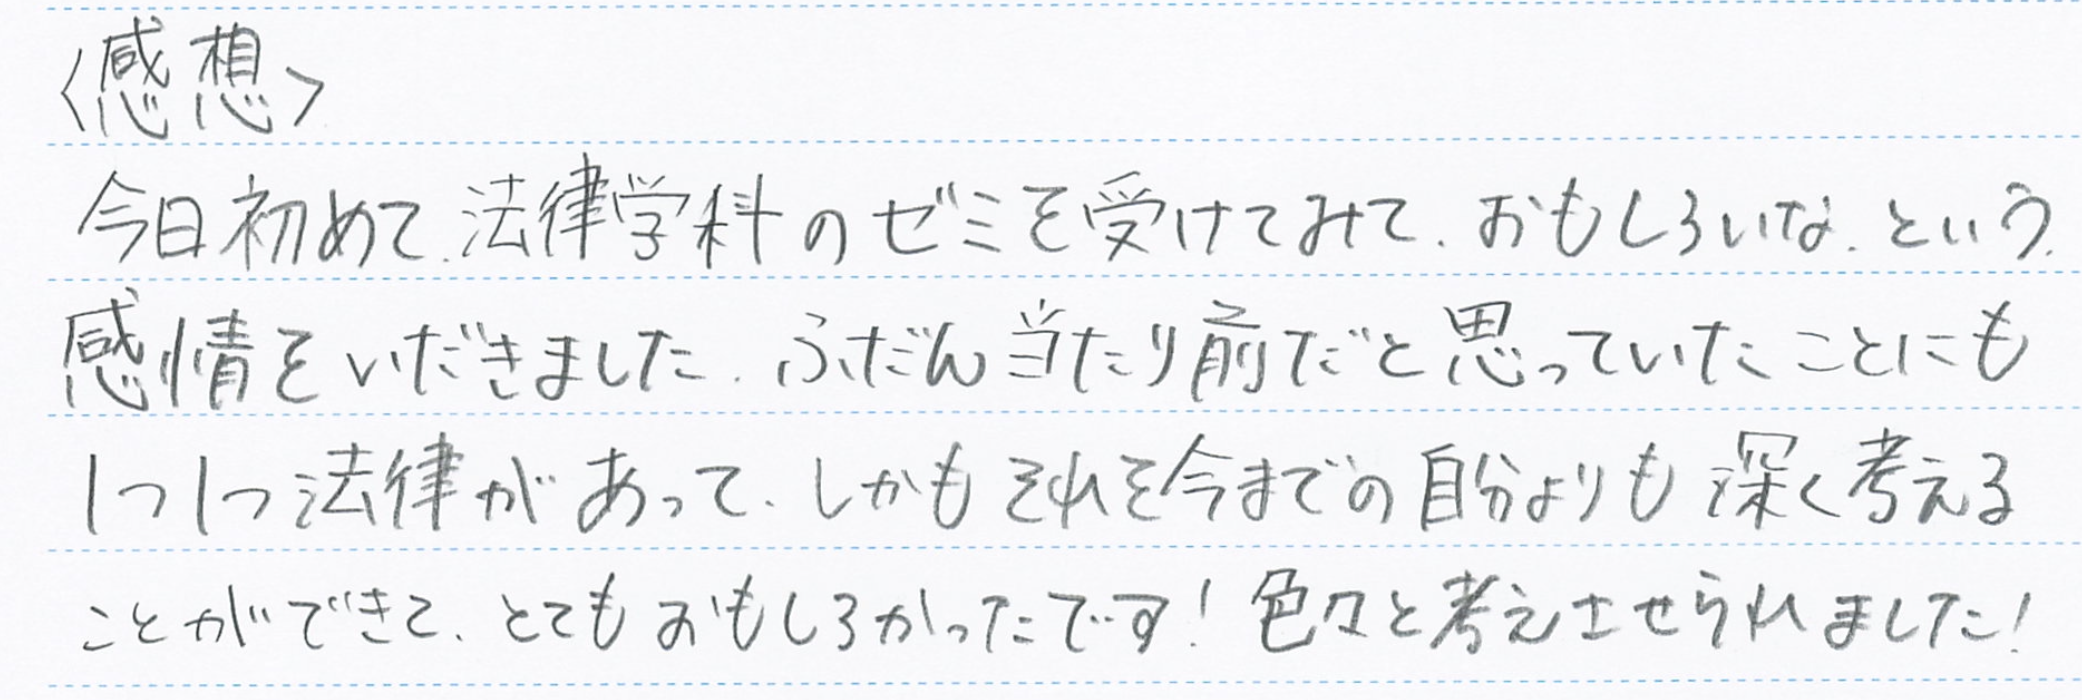 〈感想〉
今日初めて、法律学科のゼミを受けてみて、おもしろいな、という、
感情をいだきました。ふだん当たり前だと思っていたことにも
1つ1つ法律があって、しかもそれを今までの自分よりも深く考える
ことができて、とてもおもしろかったです!色々と考えさせられました!